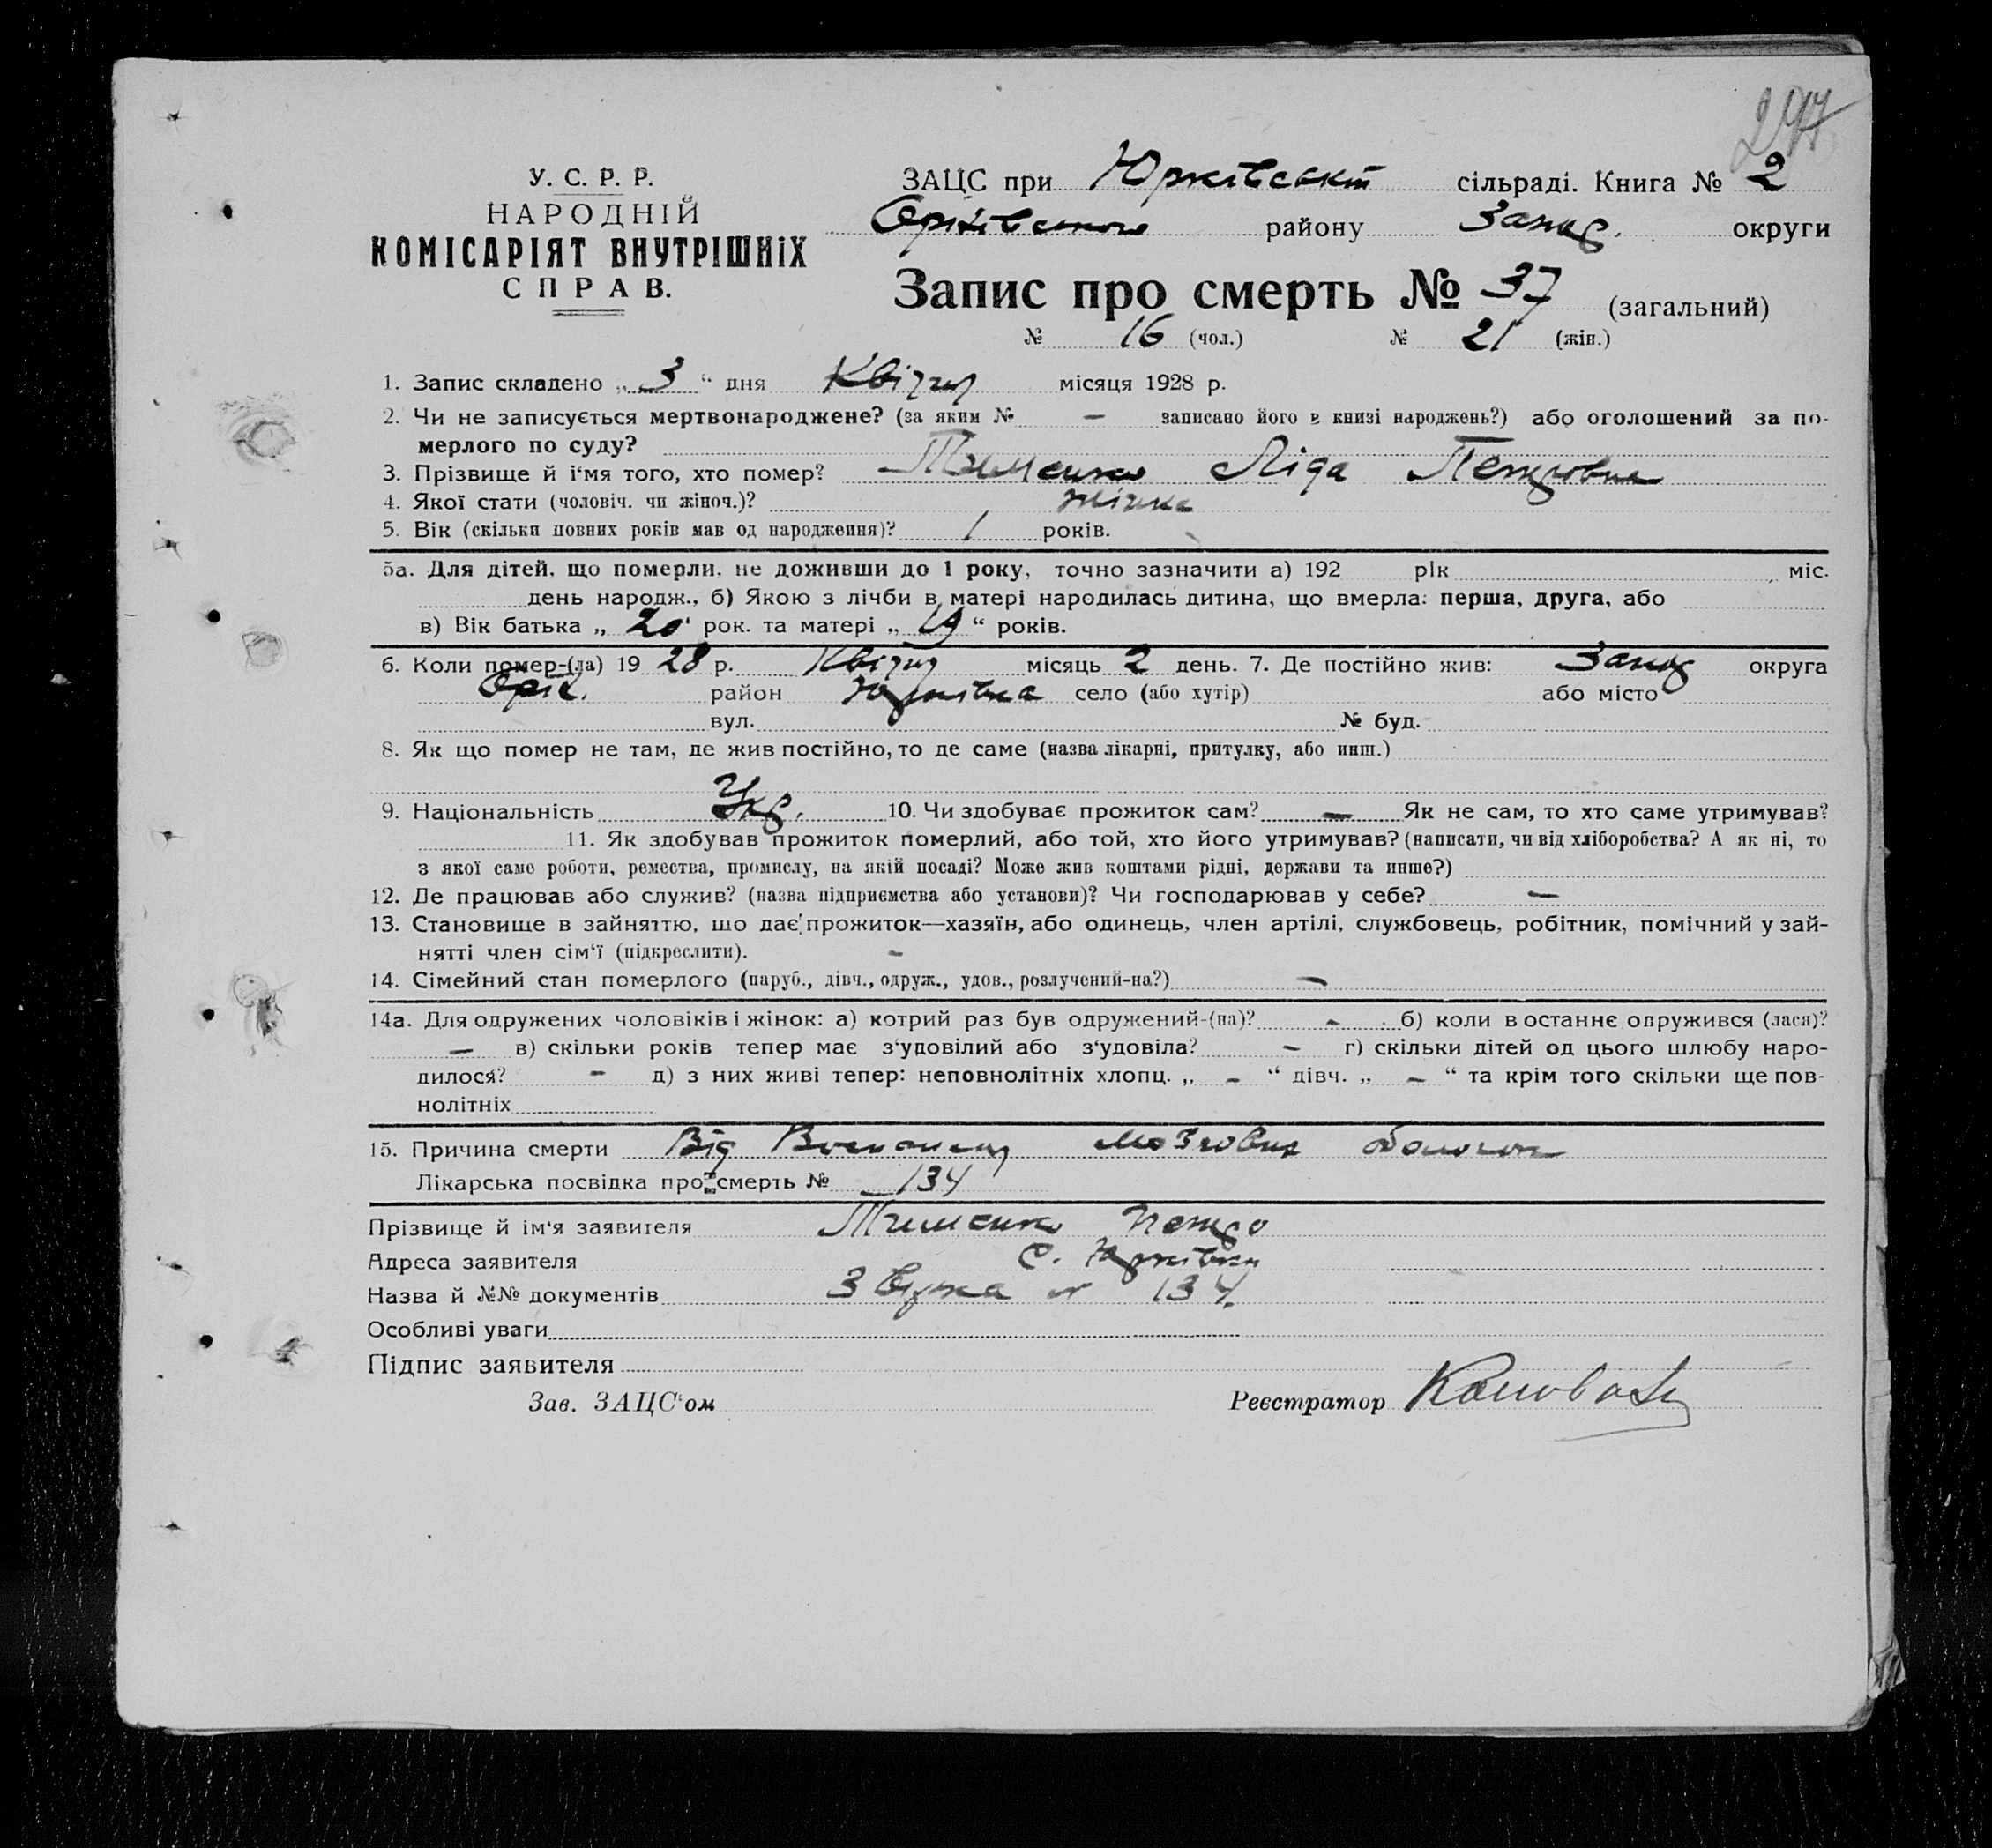 297
У. С. Р. Р.
НАРОДНІЙ
КОМІСАРІЯТ ВНУТРІШНІХ
СПРАВ.
ЗАЦС при Юрківській сільраді. Книга № 2
Оріхівського району Запор. округи
Запис про смерть № 37 (загальний)
№ 16 (чол.) № 21 (жін.)
1. Запис складено „ 3 “ дня Квітня місяця 1928 р.
2. Чи не записується мертвонароджене? (за яким № — записано його в книзі народжень?) або оголошений за по-
мерлого по суду?
3. Прізвище й і‘мя того, хто помер? Тименко Ліда Петровна
4. Якої стати (чоловіч. чи жіноч.)? жіноча
5. Вік (скільки повних років мав од народження)? 1 років.
5а. Для дітей, що померли, не доживши до 1 року, точно зазначити а) 192 рік міс.
день народж., б) Якою з лічби в матері народилась дитина, що вмерла: перша, друга, або
в) Вік батька „ 20 “ рок. та матері „ 19 “ років.
6. Коли помер-(ла) 19 28 р. Квітня місяць 2 день. 7. Де постійно жив: Запор округа
Оріх. район Юрківка село (або хутір) або місто
вул. № буд.
8. Як що помер не там, де жив постійно, то де саме (назва лікарні, притулку, або инш.)
9. Національність Укр. 10. Чи здобуває прожиток сам? — Як не сам, то хто саме утримував?
11. Як здобував прожиток померлий, або той, хто його утримував? (написати, чи від хліборобства? А як ні, то
з якої саме роботи, ремества, промислу, на якій посаді? Може жив коштами рідні, держави та инше?)
12. Де працював або служив? (назва підприємства або установи)? Чи господарював у себе? —
13. Становище в зайняттю, що дає прожиток—хазяїн, або одинець, член артілі, службовець, робітник, помічний у зай-
нятті член сім‘ї (підкреслити). —
14. Сімейний стан померлого (паруб., дівч., одруж., удов., розлучений-на?) —
14а. Для одружених чоловіків і жінок: а) котрий раз був одружений-(на)? — б) коли в останнє одружився (лася)?
— в) скільки років тепер має з‘удовілий або з‘удовіла? — г) скільки дітей од цього шлюбу наро-
дилося? — д) з них живі тепер: неповнолітніх хлопц. „ — “ дівч. „ — “ та крім того скільки ще пов-
нолітніх
15. Причина смерти Від мозгових оболочок
Лікарська посвідка про смерть № 134
Прізвище й ім‘я заявителя Тименко Петро
Адреса заявителя с. Юрківка
Назва й №№ документів 134
Особливі уваги
Підпис заявителя
Зав. ЗАЦС‘ом Реєстратор